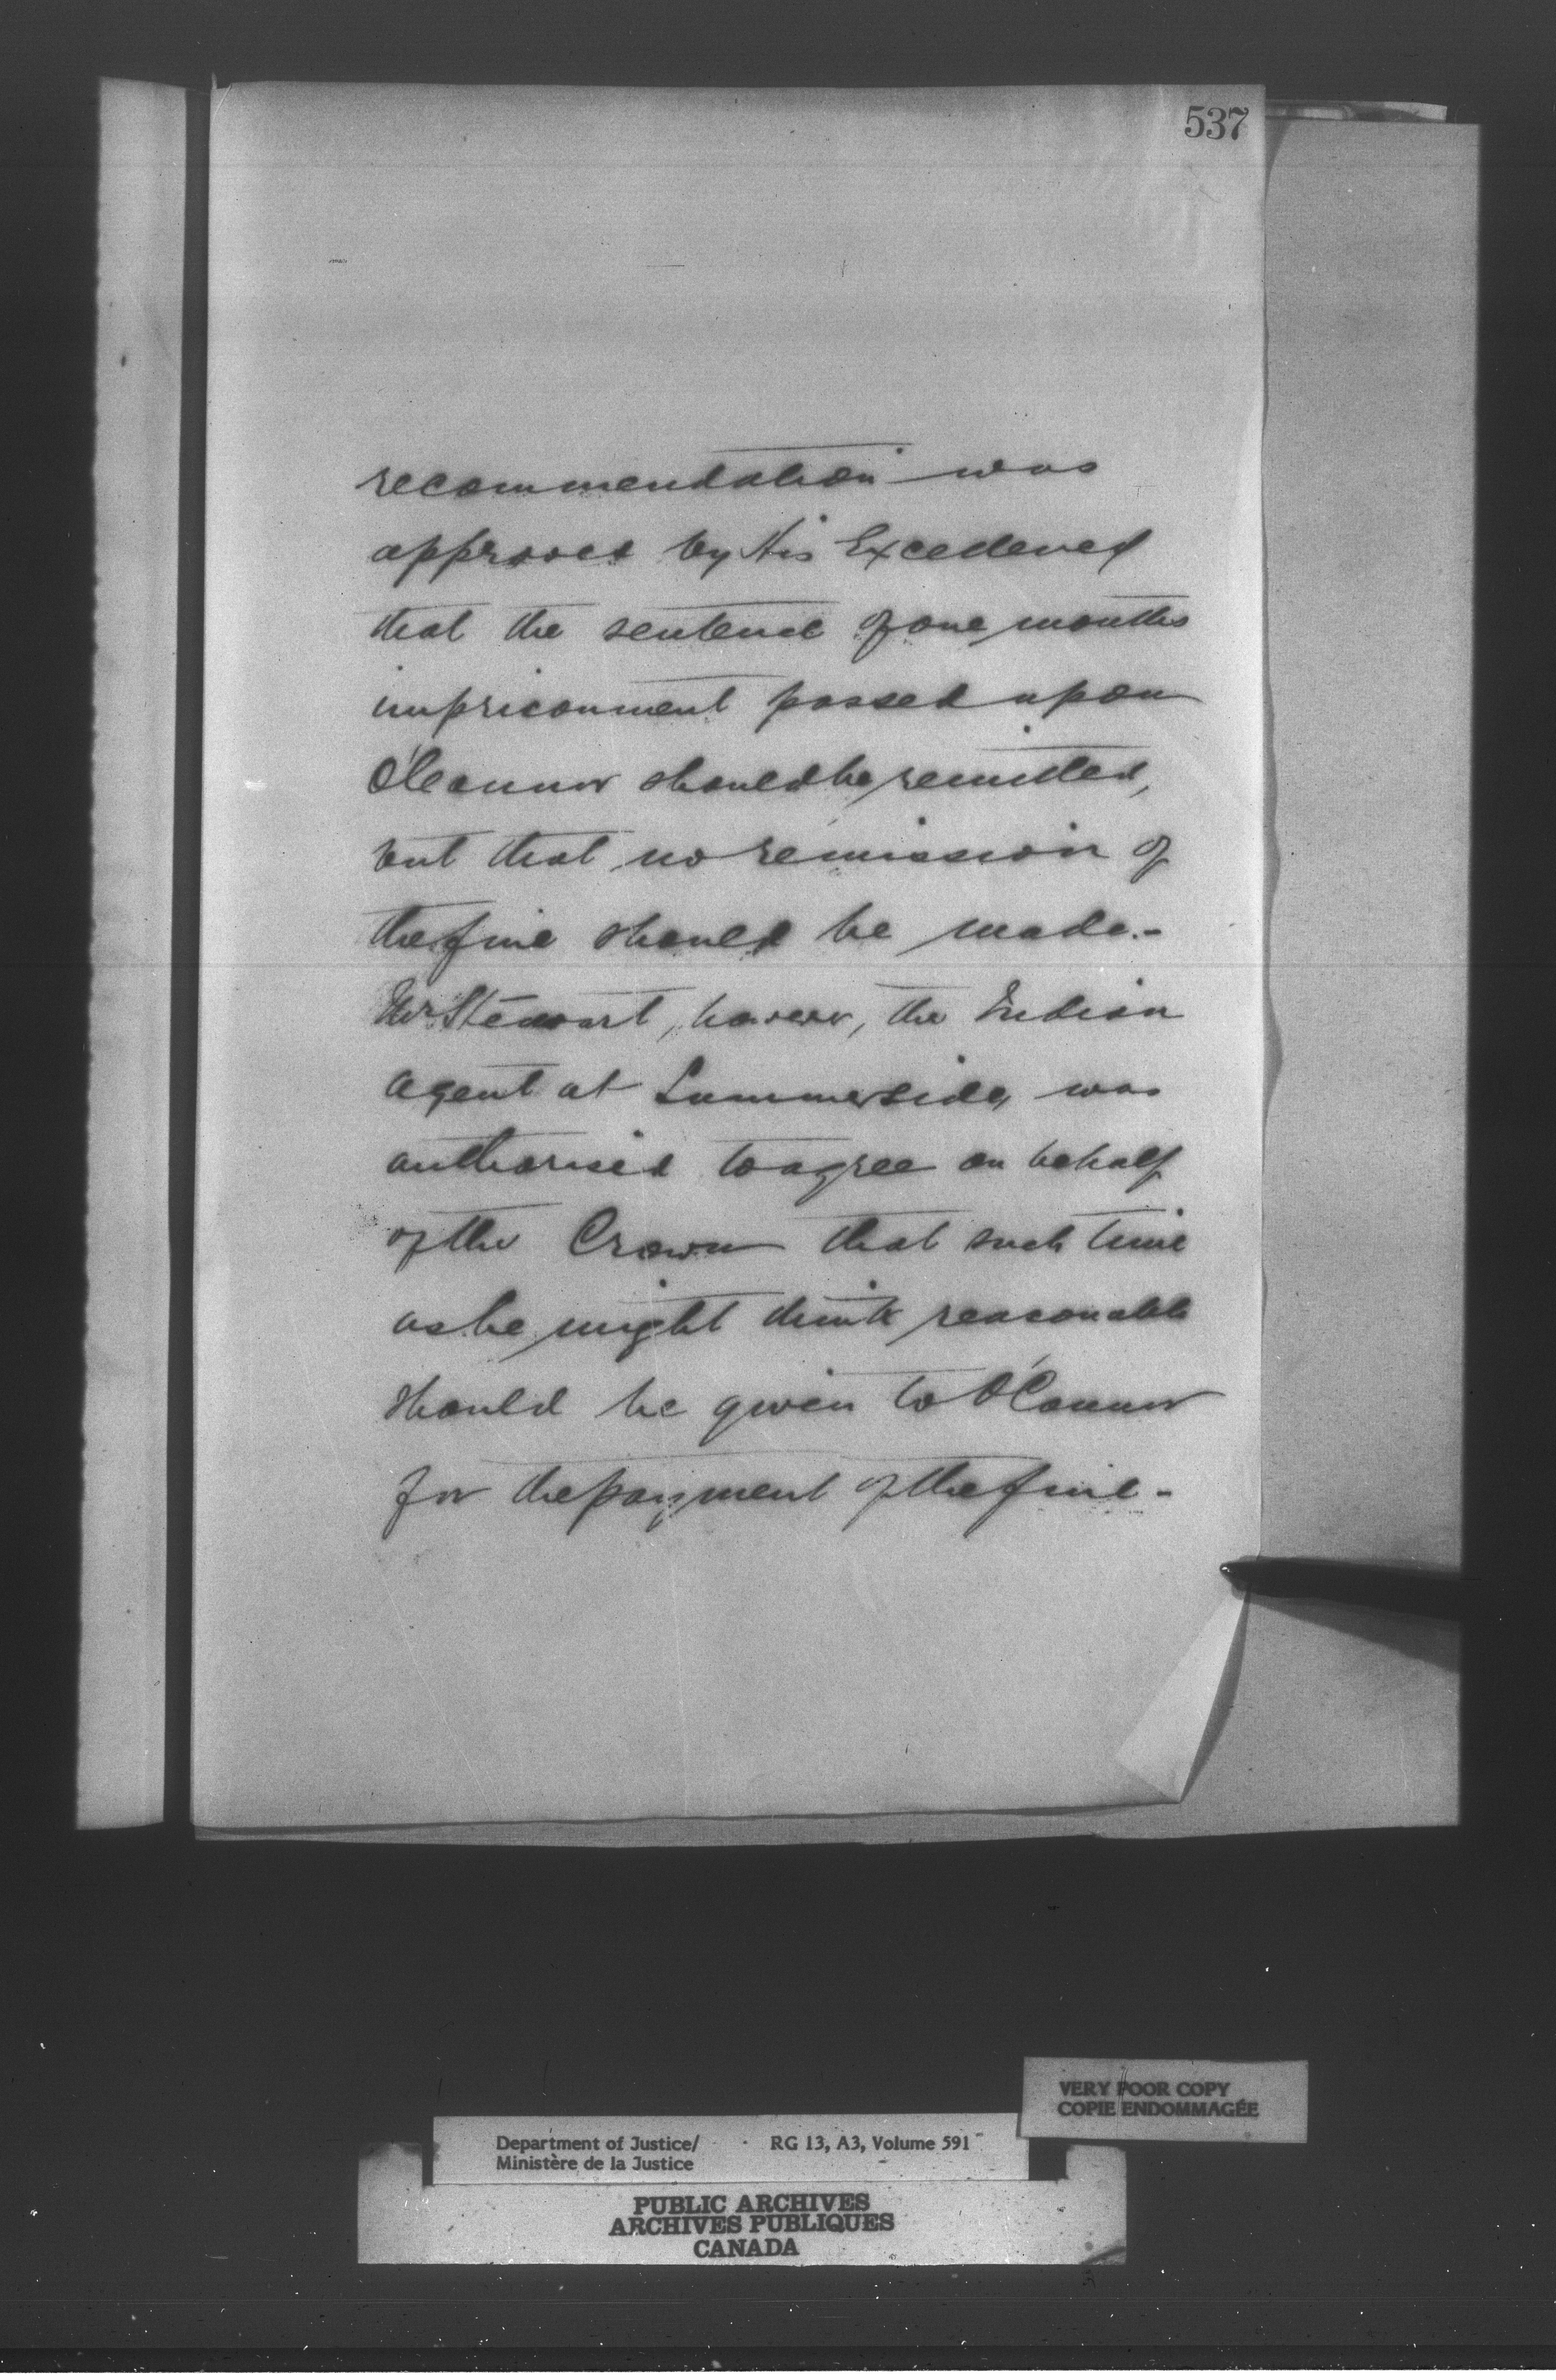 537
recommendation was
approved by His Excellency
that the sentence of one months
imprisonment passed upon
O'Connor should be remitted,
but that no remission of
the fine should be made.-
Mr Stewart, however, the Indian
agent at Summerside, was
authorised to agree on behalf
of the Crown that such time
as he might think reasonable
should be given to O'Connor
for the payment of the fine -
VERY POOR COPY
COPIE ENDOMMAGÉE
Department of Justice/ RG 13, A3, Volume 591
Ministère de la Justice
PUBLIC ARCHIVES
ARCHIVES PUBLIQUES
CANADA